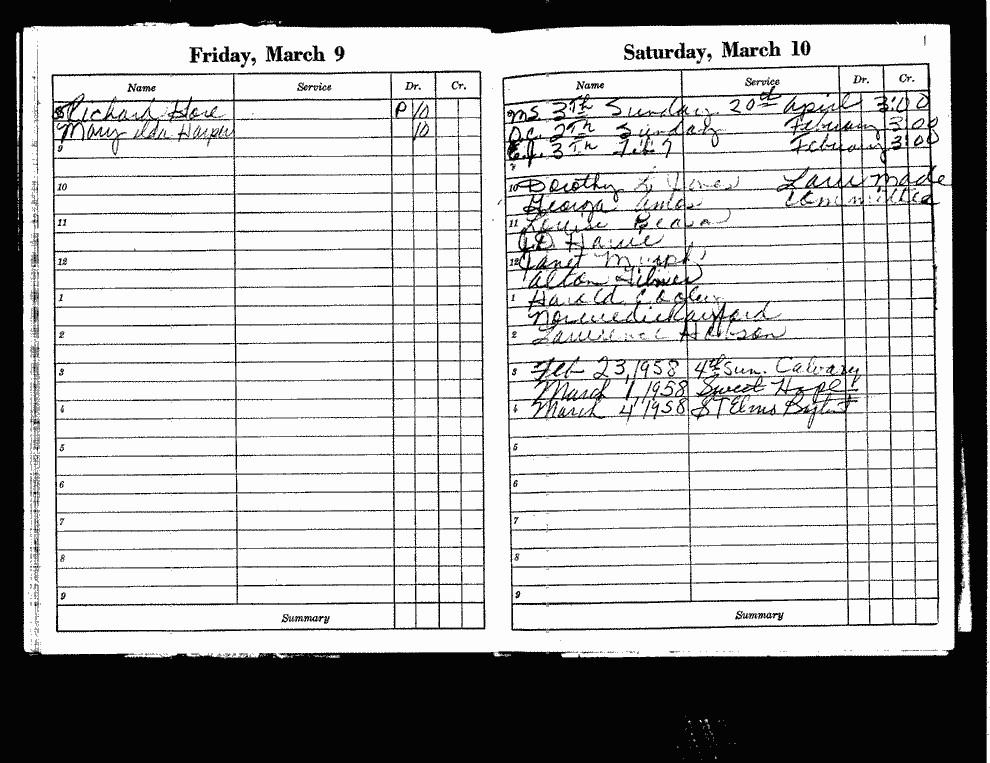 Friday, March 9
Name Service Dr. Cr.
8 Richard Hore P 10
Mary ilda Harper 10
9
10
11
12
1
2
3
4
5
6
7
8
9
Summary
Saturday, March 10
Name Service Dr. Cr.
M.S. 3TH Sunday 20th April 3:00
D.C. 2TH Sunday Febuary 3:00
3TH Febuary 3:00
9
10 Dorothy L Jones Laws made
Georgia Amos committed
11 Louise
J.D. Harrie
12 Janet Murphy
Alton Gilmer
1 Harold Cooley
2 Lawrence
3 Feb 23, 1958 4th Sun. Calvary
March 1, 1958 Sweet Hope
4 March 4 1958 ST Elmo Baptist
5
6
7
8
9
Summary